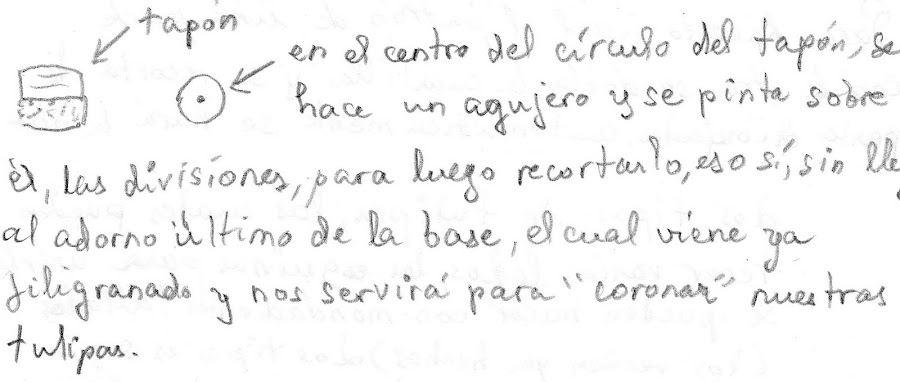 tapón
en el centro del círculo del tapón, se
hace un agujero y se pinta sobre
él, las divisiones, para luego recortarlo, eso sí, sin lle
al adorno último de la base, el cual viene ya
filigranado y nos servirá para "coronar" nuestras
tulipas.